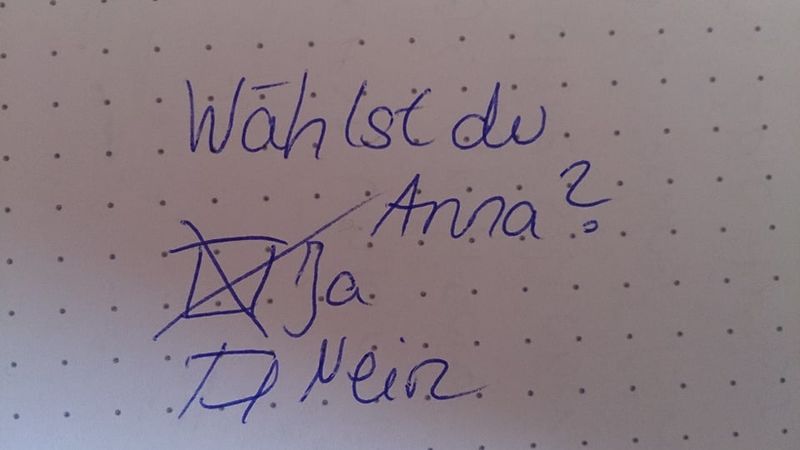 Wählst du
Anna?
Ja
Nein